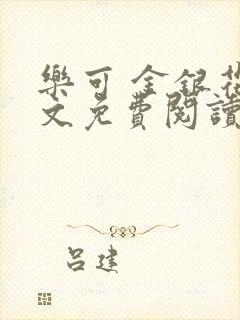 樂可 金銀花
文免費閱讀
吕建